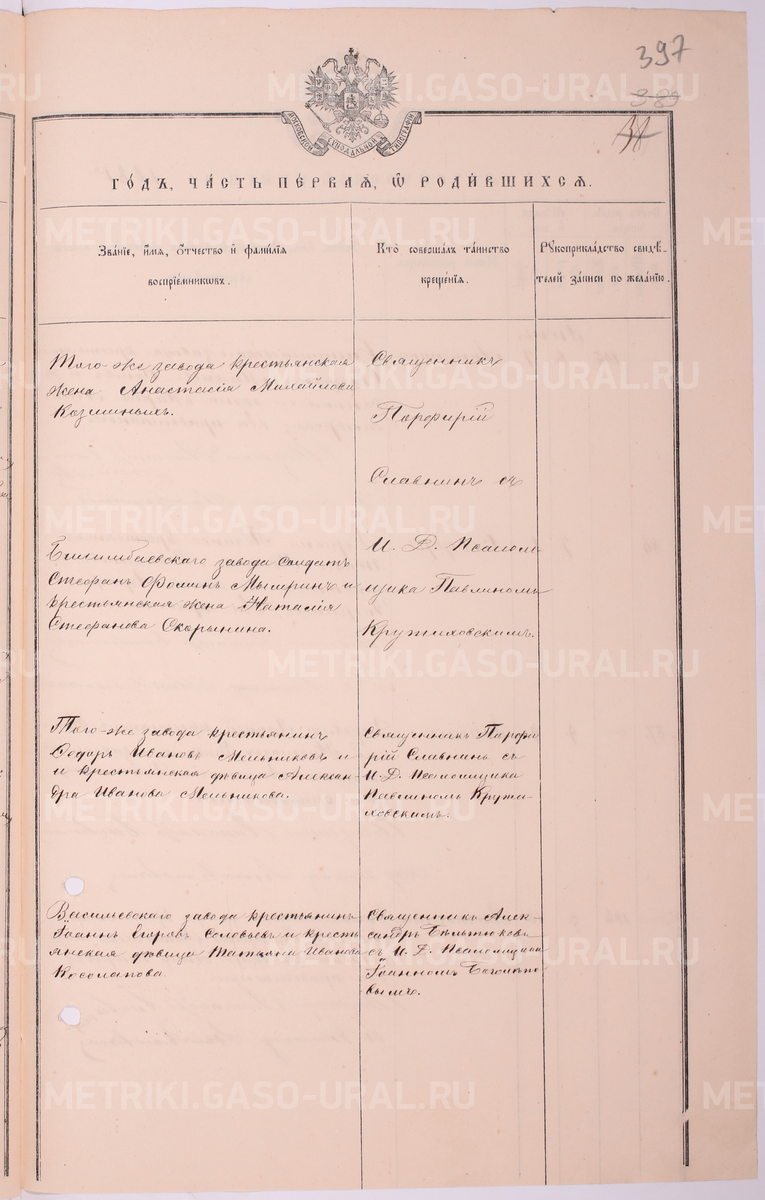 397
389
МОСКОВСКОЙ СѴНОДАЛЬНОЙ ТИПОГРАФІИ
ГО́ДЪ, ЧА́СТЬ ПЕ́РВАѦ, Ѡ҆ РОДИ́ВШИХСѦ.
Зва́нїе, и҆́мѧ, ѻ҆́тчество и҆ фами́лїѧ
воспрїе́мникѡвъ.
Кто̀ соверша́лъ та́инство
креще́нїѧ.
Рꙋкоприкла́дство свидѣ́-
телей за́писи по жела́нїю.
Того-же завода крестьянская
жена Анастасія Михайлова
Казминыхъ.
Священникъ
Порфирій
Славнинъ съ
И. Д. Псаломщика Павлиномъ
Кружиховскимъ.
Билимбаевскаго завода солдатъ
Стефанъ Ѳоминъ Мымринъ и
крестьянская жена Наталія
Стефанова Скорынина.
Того-же завода крестьянинъ
Ѳедоръ Ивановъ Мельниковъ и
и крестьянская дѣвица Алексан-
дра Иванова Мельникова.
Священникъ Порфи-
рій Славнинъ съ
И. Д. Псаломщика
Павлиномъ Кружи-
ховскимъ.
Васильевскаго завода крестьянинъ
Іоаннъ Егоровъ Соловьевъ и кресть-
янская дѣвица Татьяна Иванова
Косолапова
Священникъ Алек-
сандръ
съ И. Д. Псаломщика
Іоанномъ Богомоло-
вымъ.
METRIKI.GASO-URAL.RU